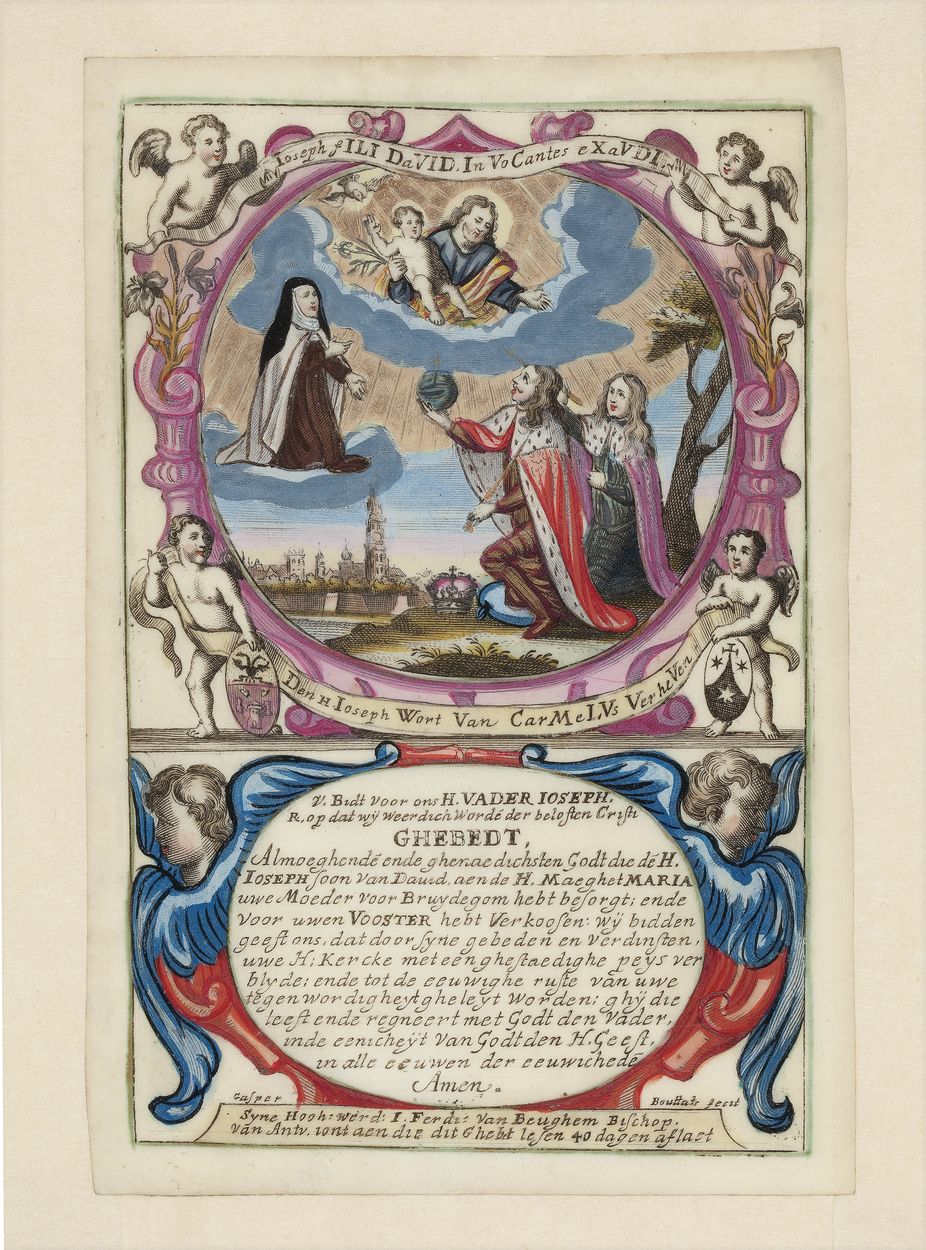 Ioseph fILI DaVID, In VoCantes eXaVDI
Den H Ioseph Wort Van CarMeLVs VerheVen
V. Bidt voor ons H. VADER IOSEPH.
R, op dat wÿ weerdich wordē der beloften Cristi
GHEBEDT,
Almoeghendē ende ghenaedichsten Godt die dē H.
IOSEPH soon van Dauid, aende H. Maeghet MARIA
uwe Moeder voor Bruydegom hebt besorgt; ende
voor uwen VOOSTER hebt Verkoosen: wÿ bidden
geeft ons, dat door syne gebeden en verdinsten,
uwe H; Kercke met een ghestaedighe peys ver
blyde; ende tot de eeuwighe ruste van uwe
tegenwordigheyt gheleyt worden; ghÿ die
leeft ende regneert met Godt den vader,
inde eenicheÿt van Godt den H. Geest,
in alle eeuwen der eeuwichedē
Amen.
Gasper Bouttats fecit
Syne Hooh: werd: I. Ferdi: van Beughem Bischop.
van Antv. iont aen die dit Ghebt lesen 40 dagen aflaet